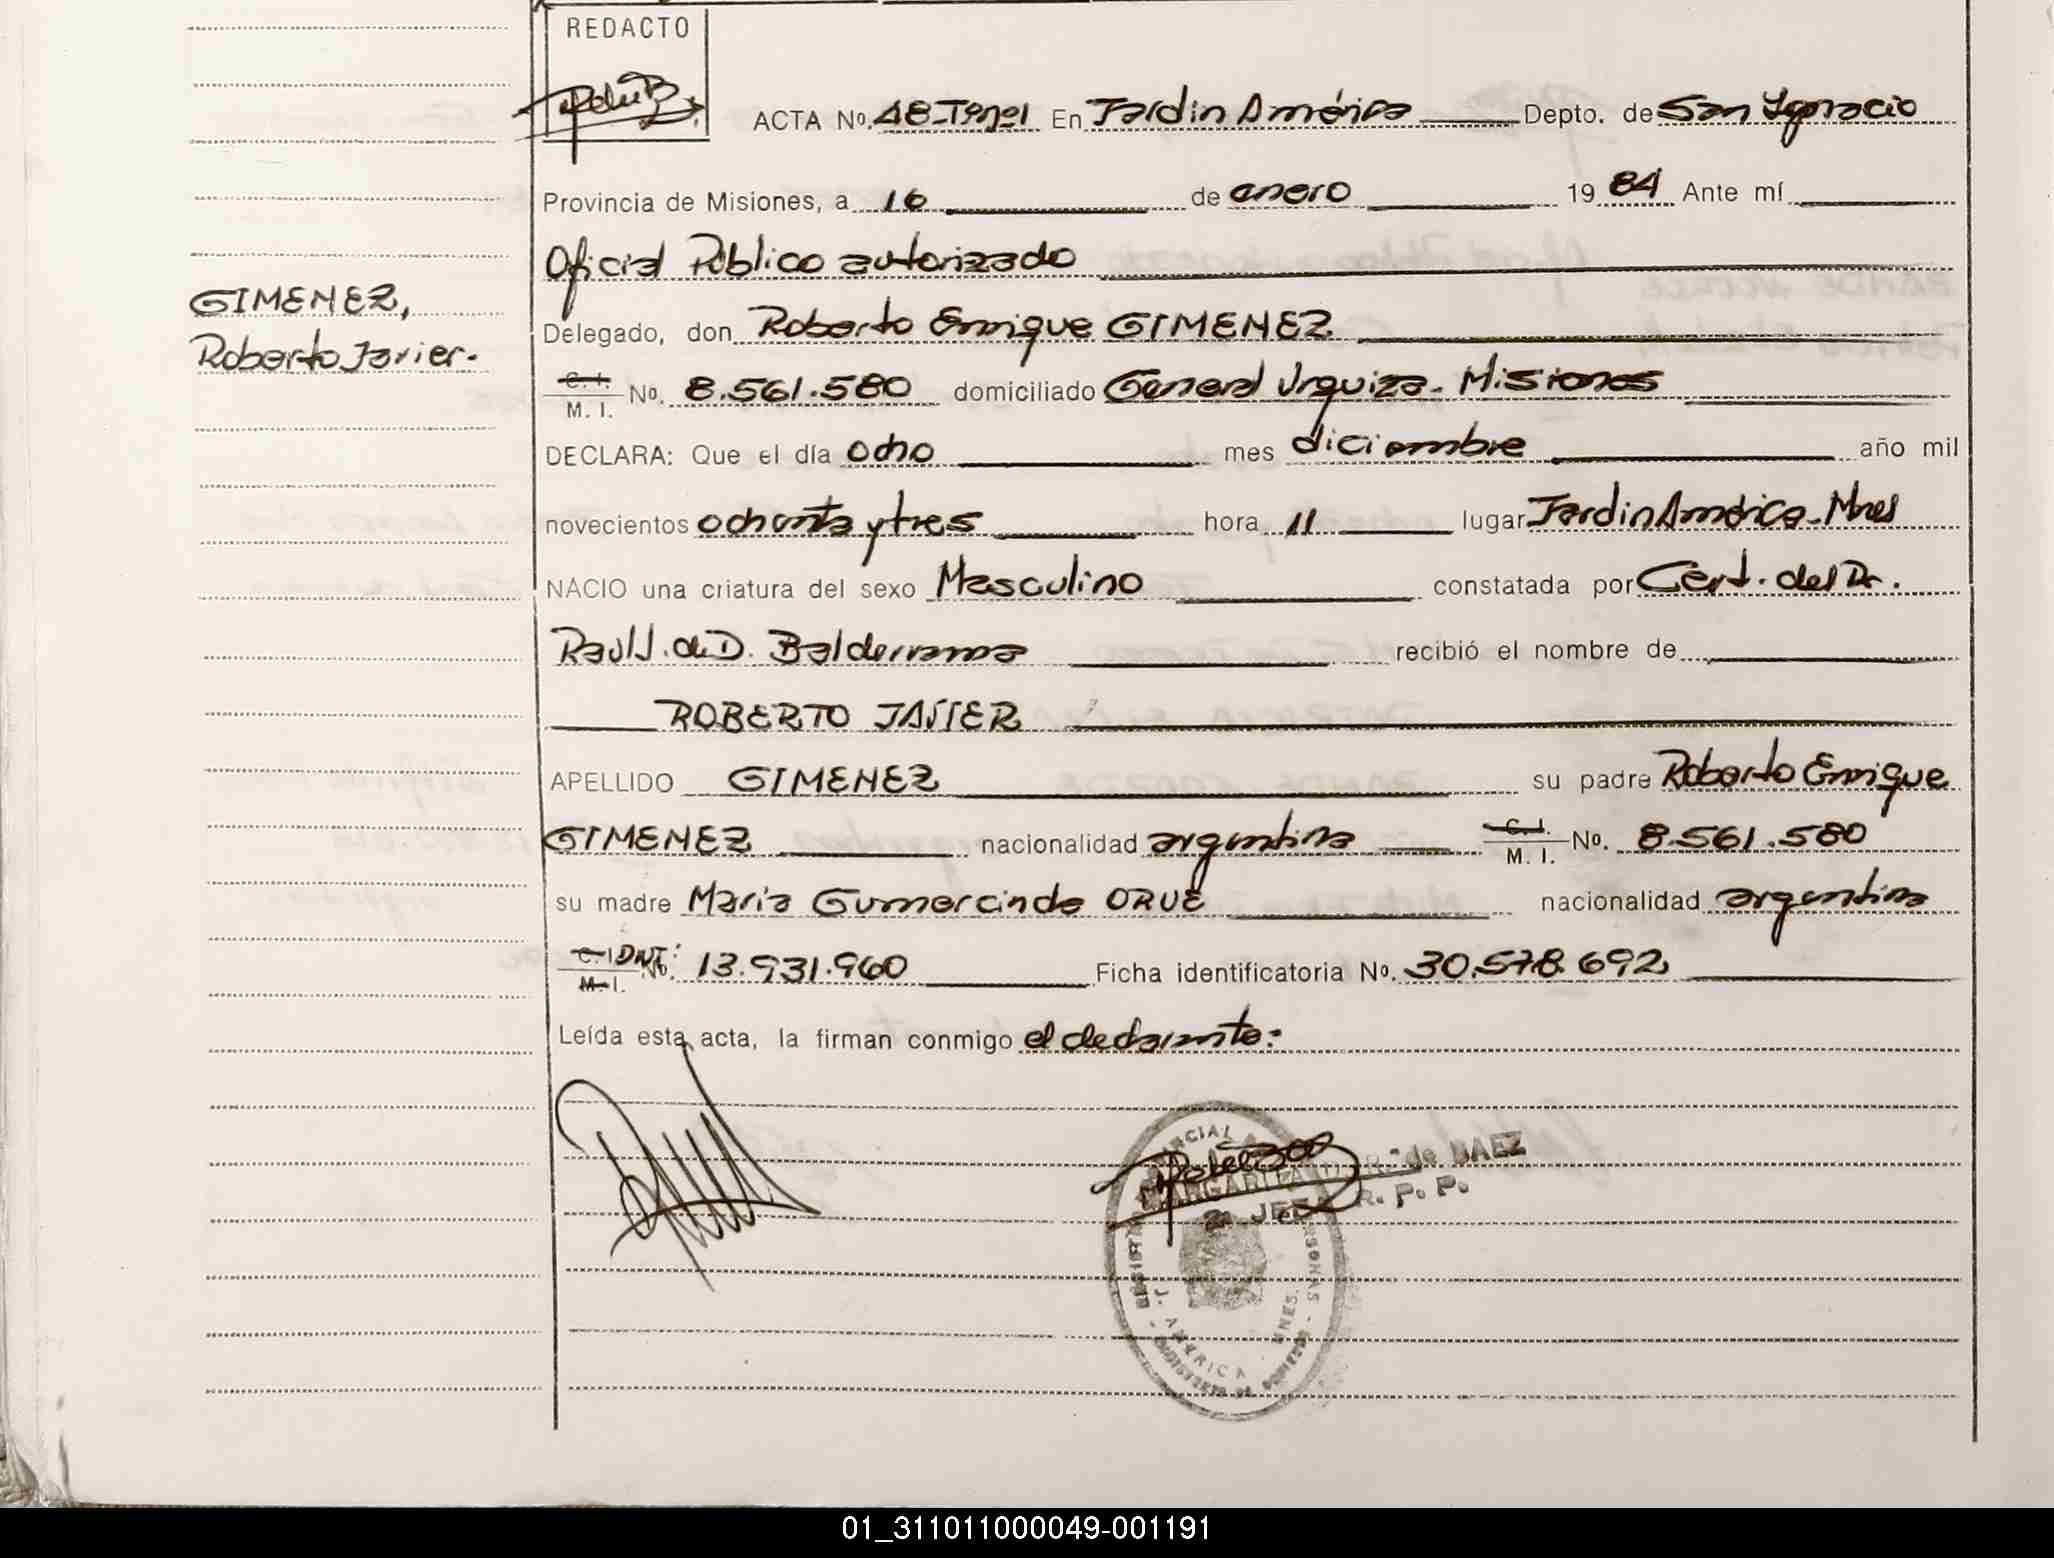 REDACTO
ACTA Nº. 48-Tº1ºº1 En Jardin América Depto. de San Ignacio
Provincia de Misiones, a 16 de enero 19 84 Ante mí
Oficial Público autorizado
GIMENEZ,
Roberto Javier.
Delegado, don Roberto Enrique GIMENEZ
C. I.
M. I. No. 8.561.580 domiciliado General Urquiza. Misiones
DECLARA: Que el día ocho mes diciembre año mil
novecientos ochenta y tres hora 11 lugar Jardin América. Mnes
NACIO una criatura del sexo Masculino constatada por Cert. del Dr.
Raul J. de D. Balderrama recibió el nombre de
ROBERTO JAVIER
APELLIDO GIMENEZ su padre Roberto Enrique
GIMENEZ nacionalidad argentina C. I. M. I. Nº. 8.561.580
su madre Maria Gumercinda ORUE nacionalidad argentina
C. I. DNI: M. I. No. 13.931.960 Ficha identificatoria Nº. 30.578.692
Leída esta acta, la firman conmigo el declarante:
MARGARITA R. de BAEZ
2a JEFA R. P. P.
J. AMERICA MNES.
01_311011000049-001191